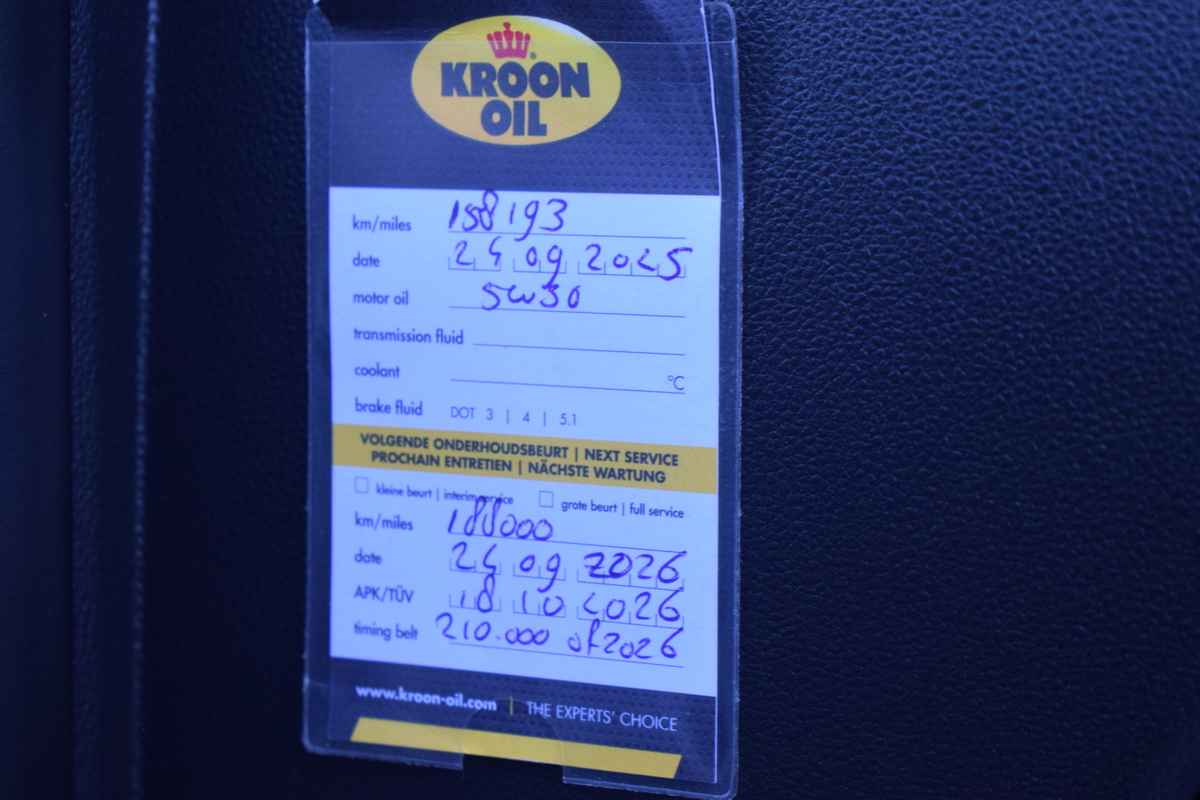 KROON
OIL
km/miles 158193
date 24 09 2025
motor oil 5w30
transmission fluid
coolant °C
brake fluid DOT 3 | 4 | 5.1
VOLGENDE ONDERHOUDSBEURT | NEXT SERVICE
PROCHAIN ENTRETIEN | NÄCHSTE WARTUNG
kleine beurt | interim service grote beurt | full service
km/miles 188000
date 24 09 2026
APK/TÜV 18 10 2026
timing belt 210.000 of 2026
www.kroon-oil.com | THE EXPERTS' CHOICE